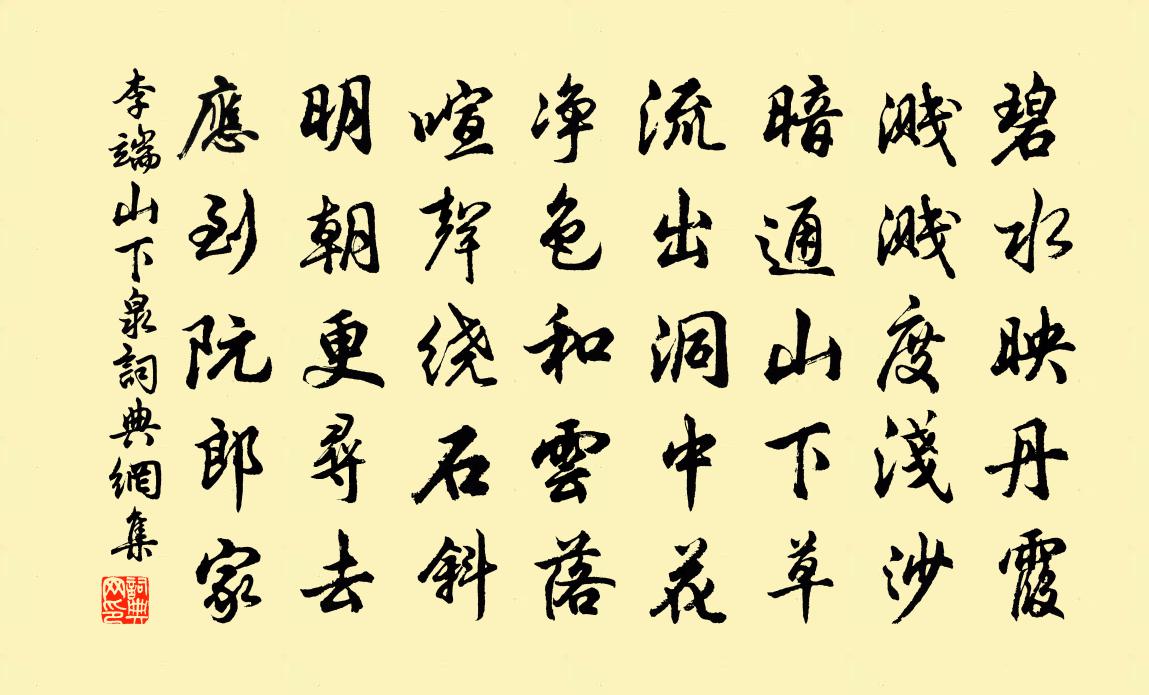 碧水映丹霞
溅溅度淺沙
暗通山下草
流出洞中花
净色和雲落
喧聲绕石斜
明朝更尋去
應到阮郎家
李端山下泉詞典網集
詞典網印